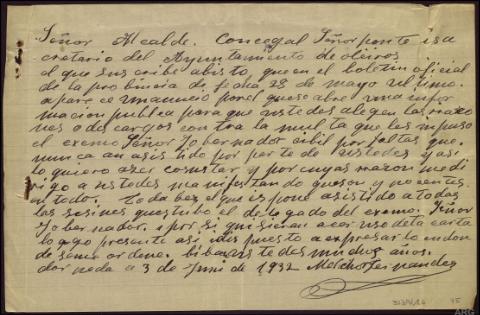 Señor Alcalde. Concegal Señor ponte i sa
cretario del Ayuntamiento de oleiros
el que suscribe abisto, que en el boletin oficial
de la probincia de fecha 28 de mayo ultimo.
aparece un anuncio por el que se abre una infor
macion publica para que ustedes alegen las razo
nes o decargos contra la multa que les impuso
el exemo Señor Jobernador Cibil por faltas que
nunca an asistido por parte de Ustedes y asi
lo quiero azer constar y por cuyas razon me di
rigo a ustedes manifestando que son ynocentes
en todo. toda bez el que espone asistido a todas
las sesines que stubo el delegado del exemo. Señor
Jobernador. i por si quisieran acer uso deta carta
lo ago presente asi dis puesto a expresarlo en don
de seme ordene. biba ustedes muchos años.
dorneda a 3 de Juni de 1932 Melchor Fernandez
45
ARG